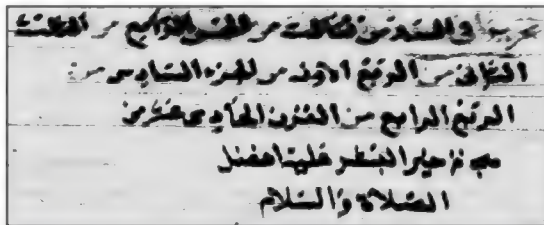 تحريرا في السدس الثالث من الخمس الرابع من الثلث
الثاني من الربع الاول من الجزء السادس من
الربع الرابع من القرن الحادي عشر من
هجرة خير البشر عليه افضل
الصلاة والسلام